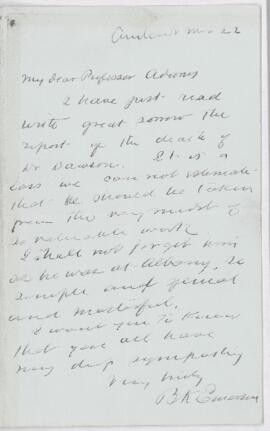 Amherst Mar 22
My Dear Professor Adams
I have just read
with great sorrow the
report of the death of
Dr Dawson. It is a
loss we can not estimate
that he should be taken
from the very midst of
so valuable work.
I shall not forget him
as he was at Albany, so
simple and genial
and masterful.
I want you to know
that you all have
my deep sympathy
Very truly
B K Emerson